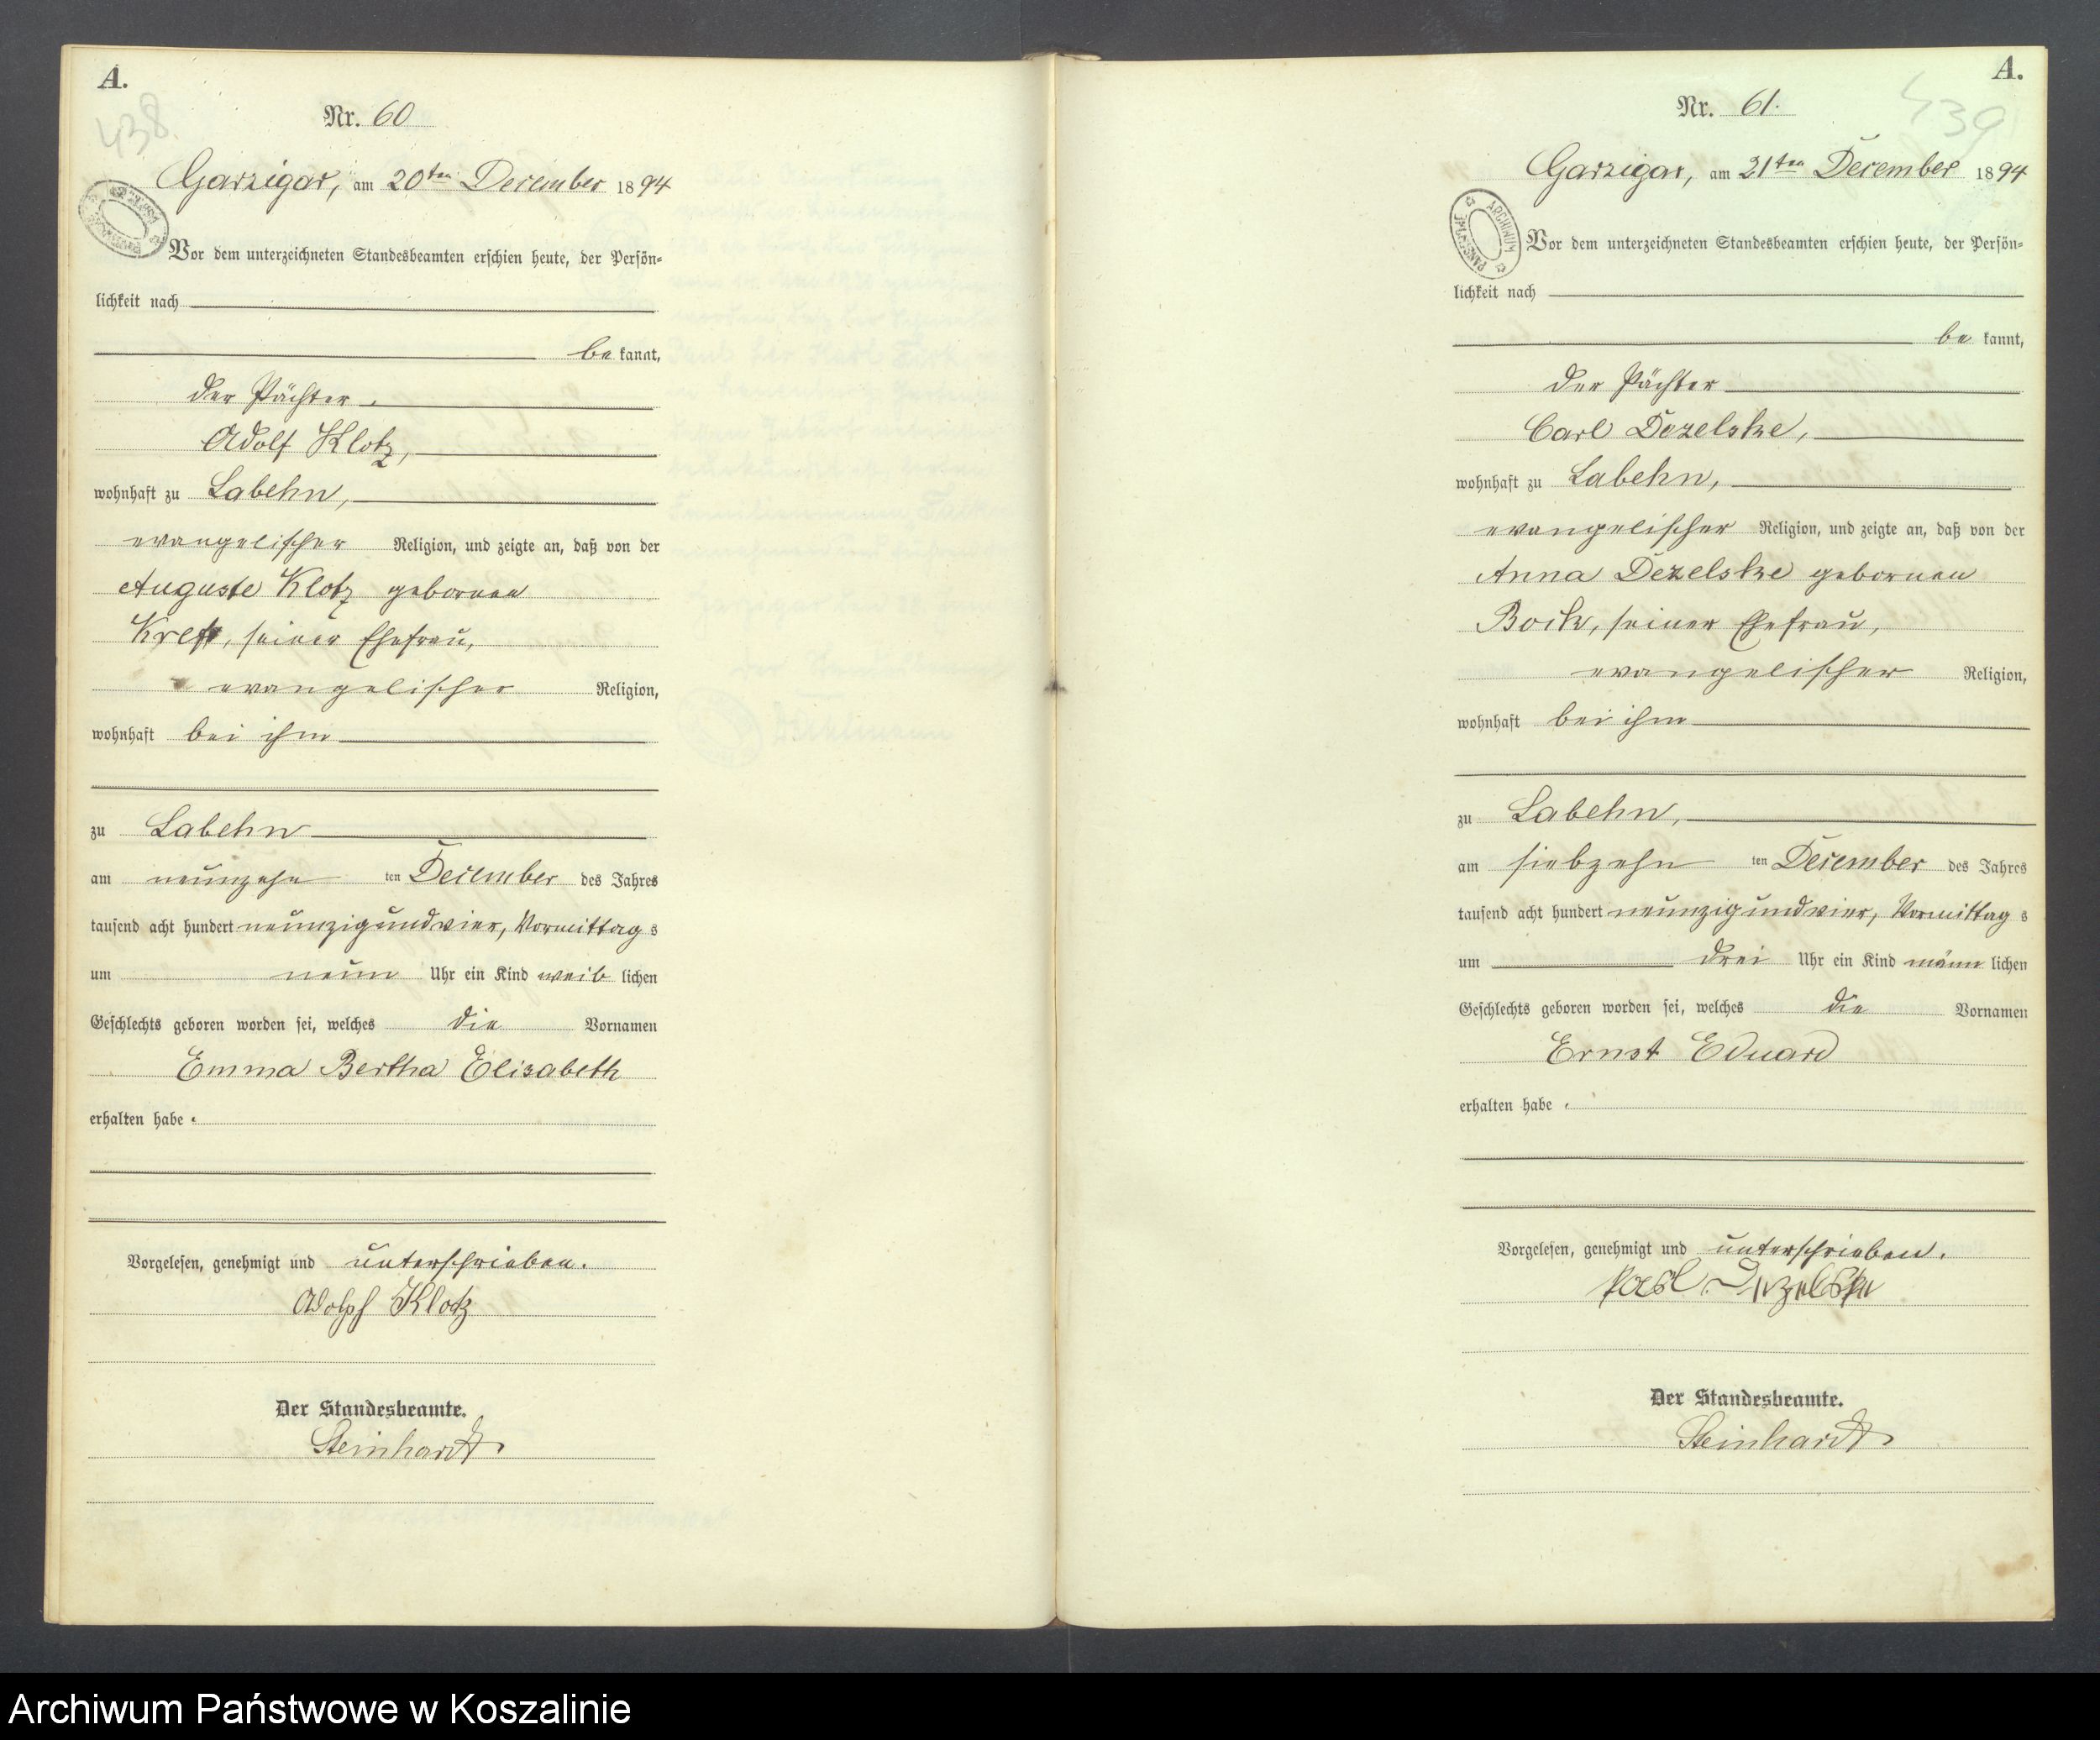 A.
438.
Nr. 60
Garzigar, am 20ten December 1894
Vor dem unterzeichneten Standesbeamten erschien heute, der Persön-
lichkeit nach
bekannt,
der Pächter
Adolf Klotz,
wohnhaft zu Labehn,
evangelischer Religion, und zeigte an, daß von der
Auguste Klotz geborenen
Kreft, seiner Ehefrau,
evangelischer Religion,
wohnhaft bei ihm
zu Labehn
am neunzehn ten December des Jahres
tausend acht hundert neunzig und vier, Vormittags
um neun Uhr ein Kind weiblichen
Geschlechts geboren worden sei, welches die Vornamen
Emma Bertha Elisabeth
erhalten habe.
Vorgelesen, genehmigt und unterschrieben.
Adolph Klotz
Der Standesbeamte.
Steinhardt
A.
439
Nr. 61.
Garzigar, am 21ten December 1894
ARCHIWUM PAŃSTWOWE
Vor dem unterzeichneten Standesbeamten erschien heute, der Persön-
lichkeit nach
bekannt,
der Pächter
Carl Dezelske,
wohnhaft zu Labehn,
evangelischer Religion, und zeigte an, daß von der
Anna Dezelske geborenen
Bock, seiner Ehefrau,
evangelischer Religion,
wohnhaft bei ihm
zu Labehn,
am siebzehn ten December des Jahres
tausend acht hundert neunzig und vier, Vormittags
um drei Uhr ein Kind männlichen
Geschlechts geboren worden sei, welches die Vornamen
Ernst Eduard
erhalten habe.
Vorgelesen, genehmigt und unterschrieben.
Karl Dezelske
Der Standesbeamte.
Steinhardt
Archiwum Państwowe w Koszalinie